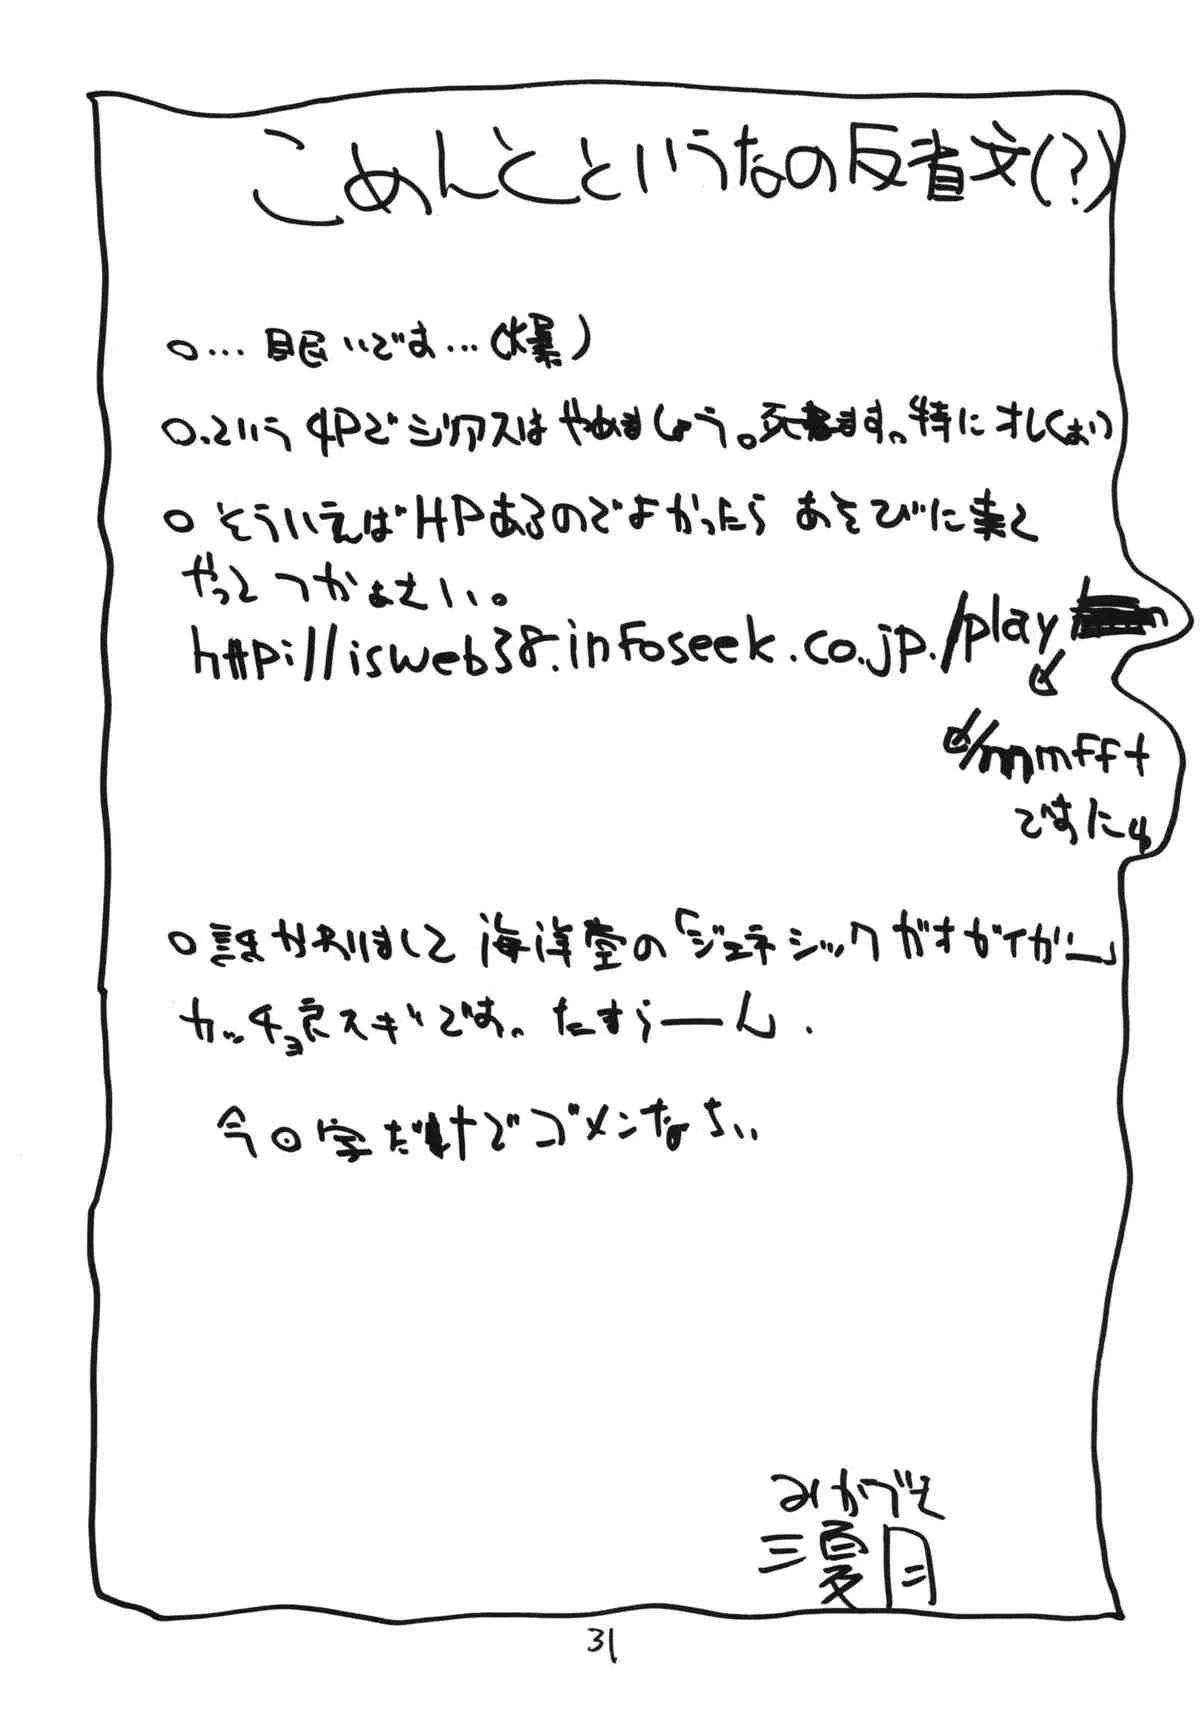 こめんとというなの反省文(?)
○…眠いです…(爆)
○.という4Pでシリアスはやめましょう。死ねます。特にオレ(おい
○そういえばHPあるのでよかったらあそびに来て
やってつかぁさい。
http://isweb38.infoseek.co.jp./play
/mmfft
ですにゅ
○誰かわりまして海洋堂の「ジェネシックガオガイガー」
カッチョ良スギです。たすらーん.
今○字だけでゴメンなさい
みかづき
三夏月
31